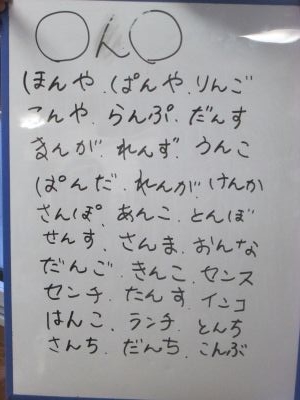 ○ん○
ほんや.ぱんや.りんご
こんや.らんぷ.だんす
まんが.れんず.うんこ
ぱんだ.れんが.けんか
さんぽ.あんこ.とんぼ
せんす.さんま.おんな
だんご.きんこ.センス
センチ.たんす.インコ
はんこ.ランチ.とんち
さんち.だんち.こんぶ